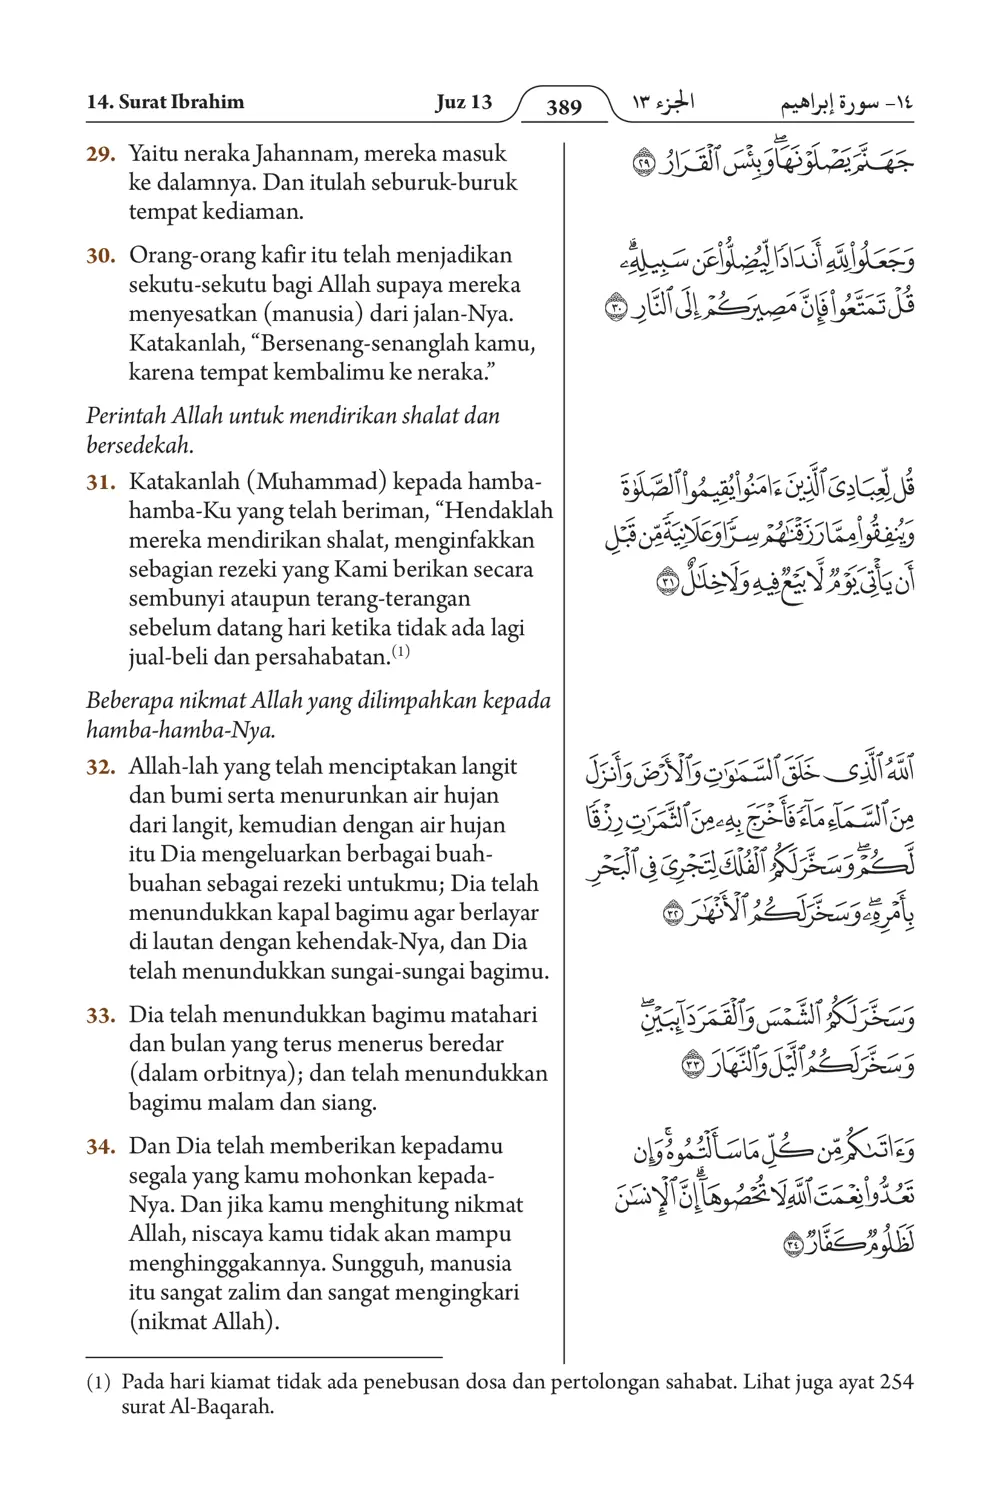 14. Surat Ibrahim
Juz 13
389
الجزء ١٣
١٤- سورة إبراهيم
29. Yaitu neraka Jahannam, mereka masuk
ke dalamnya. Dan itulah seburuk-buruk
tempat kediaman.
30. Orang-orang kafir itu telah menjadikan
sekutu-sekutu bagi Allah supaya mereka
menyesatkan (manusia) dari jalan-Nya.
Katakanlah, “Bersenang-senanglah kamu,
karena tempat kembalimu ke neraka.”
Perintah Allah untuk mendirikan shalat dan
bersedekah.
31. Katakanlah (Muhammad) kepada hamba-
hamba-Ku yang telah beriman, “Hendaklah
mereka mendirikan shalat, menginfakkan
sebagian rezeki yang Kami berikan secara
sembunyi ataupun terang-terangan
sebelum datang hari ketika tidak ada lagi
jual-beli dan persahabatan.(1)
Beberapa nikmat Allah yang dilimpahkan kepada
hamba-hamba-Nya.
32. Allah-lah yang telah menciptakan langit
dan bumi serta menurunkan air hujan
dari langit, kemudian dengan air hujan
itu Dia mengeluarkan berbagai buah-
buahan sebagai rezeki untukmu; Dia telah
menundukkan kapal bagimu agar berlayar
di lautan dengan kehendak-Nya, dan Dia
telah menundukkan sungai-sungai bagimu.
33. Dia telah menundukkan bagimu matahari
dan bulan yang terus menerus beredar
(dalam orbitnya); dan telah menundukkan
bagimu malam dan siang.
34. Dan Dia telah memberikan kepadamu
segala yang kamu mohonkan kepada-
Nya. Dan jika kamu menghitung nikmat
Allah, niscaya kamu tidak akan mampu
menghinggakannya. Sungguh, manusia
itu sangat zalim dan sangat mengingkari
(nikmat Allah).
جَهَنَّمَ يَصۡلَوۡنَهَاۖ وَبِئۡسَ ٱلۡقَرَارُ ٢٩
وَجَعَلُواْ لِلَّهِ أَندَادٗا لِّيُضِلُّواْ عَن سَبِيلِهِۦۗ
قُلۡ تَمَتَّعُواْ فَإِنَّ مَصِيرَكُمۡ إِلَى ٱلنَّارِ ٣٠
قُل لِّعِبَادِيَ ٱلَّذِينَ ءَامَنُواْ يُقِيمُواْ ٱلصَّلَوٰةَ
وَيُنفِقُواْ مِمَّا رَزَقۡنَٰهُمۡ سِرّٗا وَعَلَانِيَةٗ مِّن قَبۡلِ
أَن يَأۡتِيَ يَوۡمٞ لَّا بَيۡعٞ فِيهِ وَلَا خِلَٰلٌ ٣١
ٱللَّهُ ٱلَّذِي خَلَقَ ٱلسَّمَٰوَٰتِ وَٱلۡأَرۡضَ وَأَنزَلَ
مِنَ ٱلسَّمَآءِ مَآءٗ فَأَخۡرَجَ بِهِۦ مِنَ ٱلثَّمَرَٰتِ رِزۡقٗا
لَّكُمۡۖ وَسَخَّرَ لَكُمُ ٱلۡفُلۡكَ لِتَجۡرِيَ فِي ٱلۡبَحۡرِ
بِأَمۡرِهِۦۖ وَسَخَّرَ لَكُمُ ٱلۡأَنۡهَٰرَ ٣٢
وَسَخَّرَ لَكُمُ ٱلشَّمۡسَ وَٱلۡقَمَرَ دَآئِبَيۡنِۖ
وَسَخَّرَ لَكُمُ ٱلَّيۡلَ وَٱلنَّهَارَ ٣٣
وَءَاتَىٰكُم مِّن كُلِّ مَا سَأَلۡتُمُوهُۚ وَإِن
تَعُدُّواْ نِعۡمَتَ ٱللَّهِ لَا تُحۡصُوهَآۗ إِنَّ ٱلۡإِنسَٰنَ
لَظَلُومٞ كَفَّارٞ ٣٤
(1) Pada hari kiamat tidak ada penebusan dosa dan pertolongan sahabat. Lihat juga ayat 254
surat Al-Baqarah.